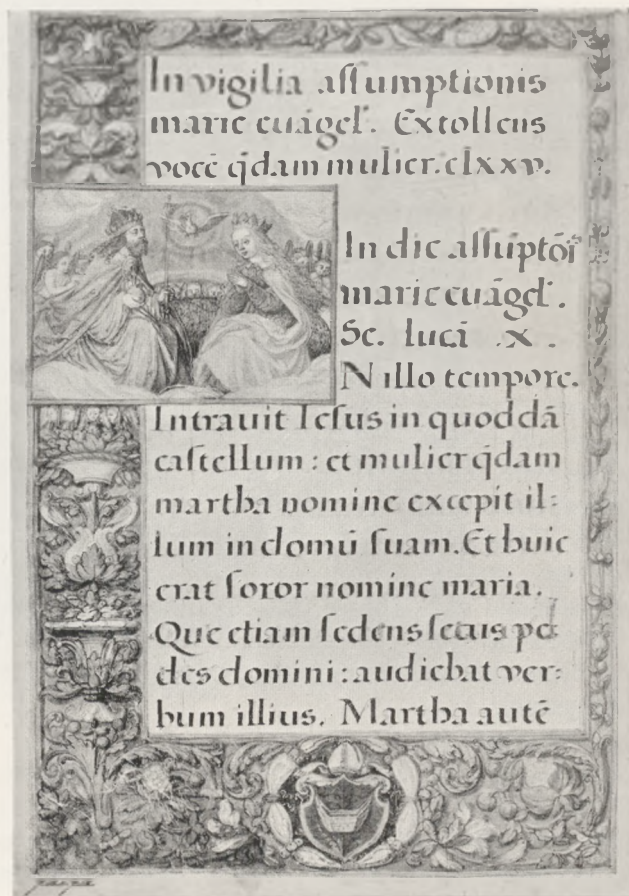 In vigilia aſſumptionis
marie euãgel'. Extollens
vocē q̃dam mulier. clxxv.
In die aſſũptõi
marie euãgel'.
Sc. lucã .x.
N illo tempore.
Intrauit Ieſus in quoddã
caſtellum : et mulier q̃dam
martha nomine excepit il:
lum in domũ ſuam. Et huic
erat ſoror nomine maria.
Que etiam ſedens ſecus pe
des domini : audiebat ver:
bum illius. Martha autē